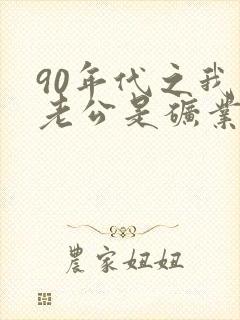 90年代之我
老公是礦業
農家妞妞